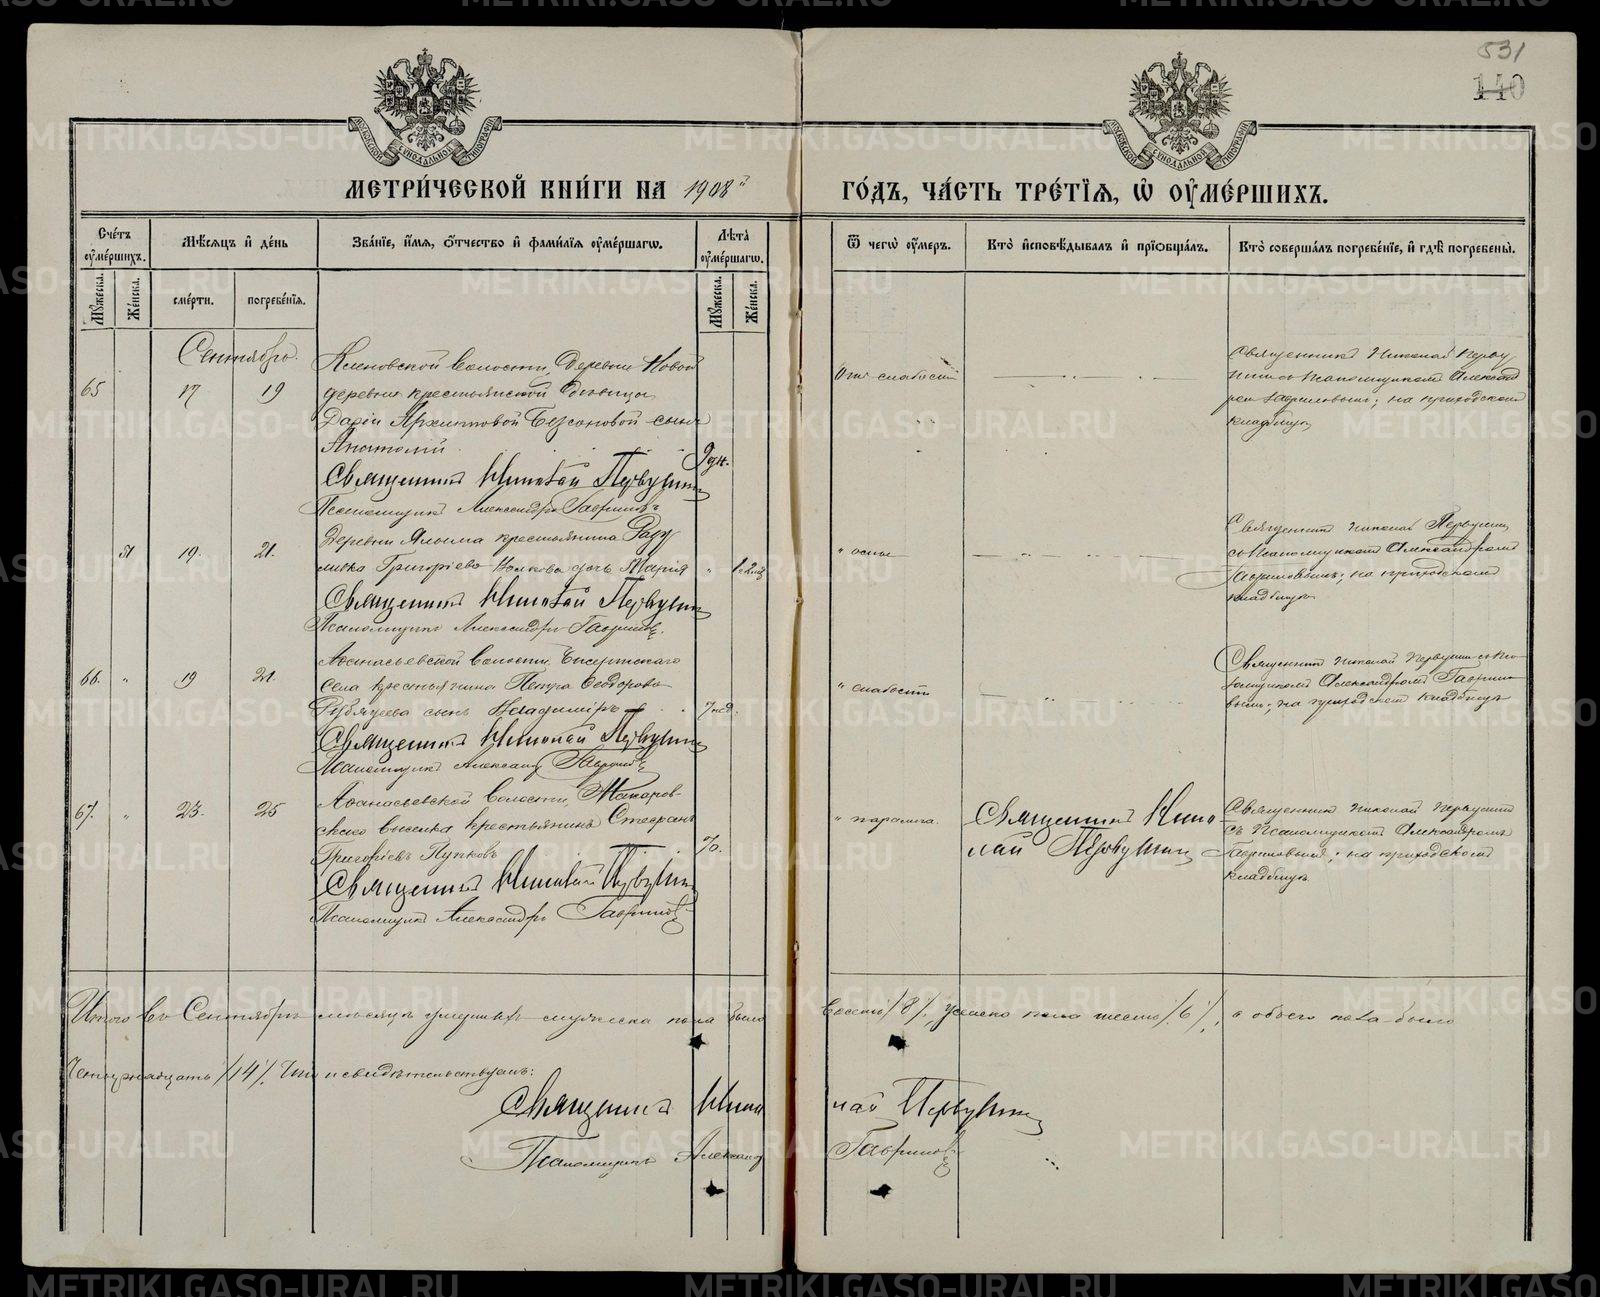 531
140
МЕТРИ́ЧЕСКОЙ КНИ́ГИ НА 1908й ГО́ДЪ, ЧА́СТЬ ТРЕ́ТІѦ, Ѡ ОУМЕ́РШИХЪ.
Сче́тъ оуме́ршихъ.
Мѣ́сѧцъ и де́нь
Зва́нїе, и́мѧ, о́тчество и фами́лїѧ оуме́ршагѡ.
Лѣ́та оуме́ршагѡ.
Ѿ чегѡ̀ оу́меръ.
Кто̀ и҆сповѣ́дывалъ и҆ прїѡбща́лъ.
Кто̀ соверша́лъ погребе́нїе, и҆ гдѣ̀ погребены̀.
Мꙋ́жеска.
Же́нска.
сме́рти.
погребе́нїѧ.
Мꙋ́жеска.
Же́нска.
Сентябрь.
65 17 19
Кленовской волости, деревни Новой
деревни крестьянской девицы
Дарiи Архипповой Безсоновой сынъ
Анатолiй 9 дн.
Священникъ Николай Первушинъ
Псаломщикъ Александръ Гавриловъ
Отъ слабости
Священникъ Николай Перву
шинъ съ псаломщикомъ Александ
ромъ Гавриловымъ; на приходскомъ
кладбищѣ
19. 21.
крестьянина
Григорiева дочь Марiя
Священникъ Николай Первушинъ
Псаломщикъ Александръ Гавриловъ.
" оспы
Священникъ Николай Первушинъ
съ псаломщикомъ Александромъ
Гавриловымъ; на приходскомъ
кладбищѣ
66. " 19 21.
Афанасьевской волости, Бисертскаго
села крестьянина Петра Ѳеодорова
сынъ Владимiръ 7 нед.
Священникъ Николай Первушинъ
Псаломщикъ Александръ Гавриловъ
" слабости
Священникъ Николай Первушинъ съ пса
ломщикомъ Александромъ Гаврило
вымъ; на приходскомъ кладбищѣ
67. " 23. 25
Афанасьевской волости, Макаров-
скаго выселка крестьянинъ Стефанъ
Григорiевъ Пупковъ 70.
Священникъ Николай Первушинъ
Псаломщикъ Александръ Гавриловъ
" паралича.
Священникъ Нико
лай Первушинъ
Священникъ Николай Первушинъ
съ псаломщикомъ Александромъ
Гавриловымъ; на приходскомъ
кладбищѣ.
Итого въ Сентябрѣ мѣсяцѣ умершихъ мужеска пола было восемь /8/, женска пола шесть /6/, а обоего пола было
четырнадцать /14/. Что и свидѣтельствуемъ:
Священникъ Николай Первушинъ
Псаломщикъ Александръ Гавриловъ